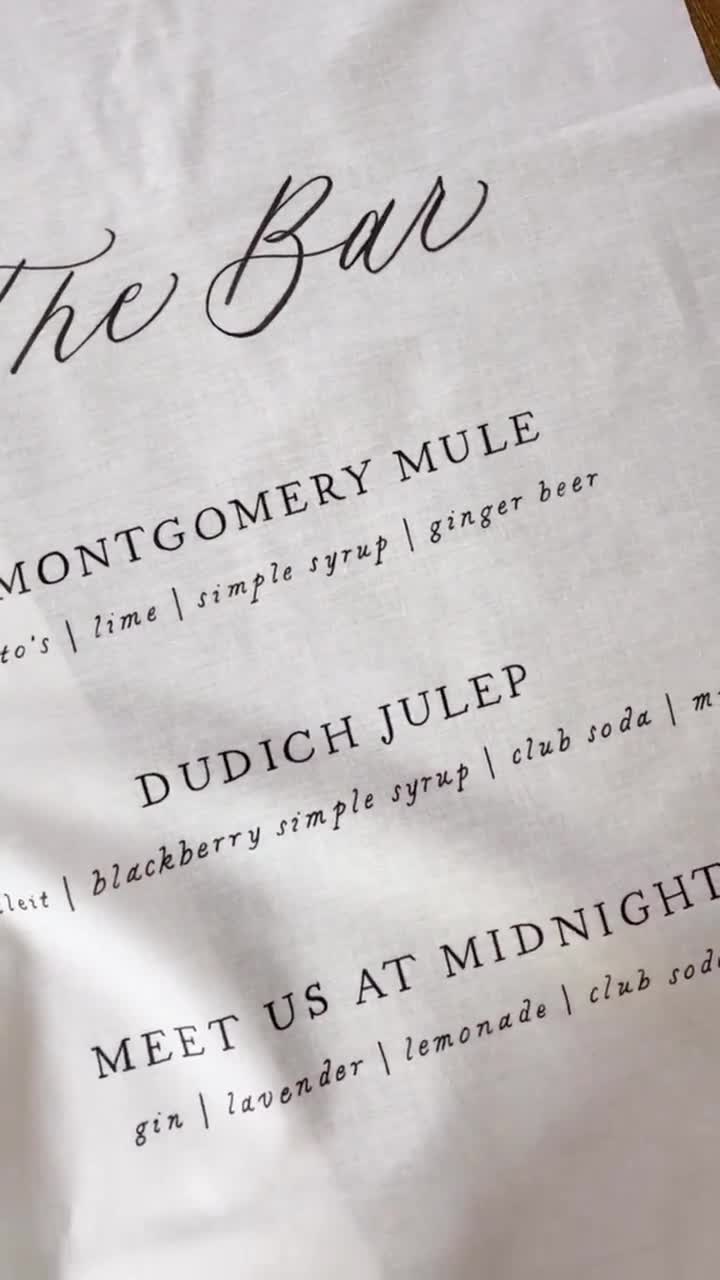 The Bar
MONTGOMERY MULE
to's | lime | simple syrup | ginger beer
DUDICH JULEP
leit | blackberry simple syrup | club soda | m
MEET US AT MIDNIGHT
gin | lavender | lemonade | club soda